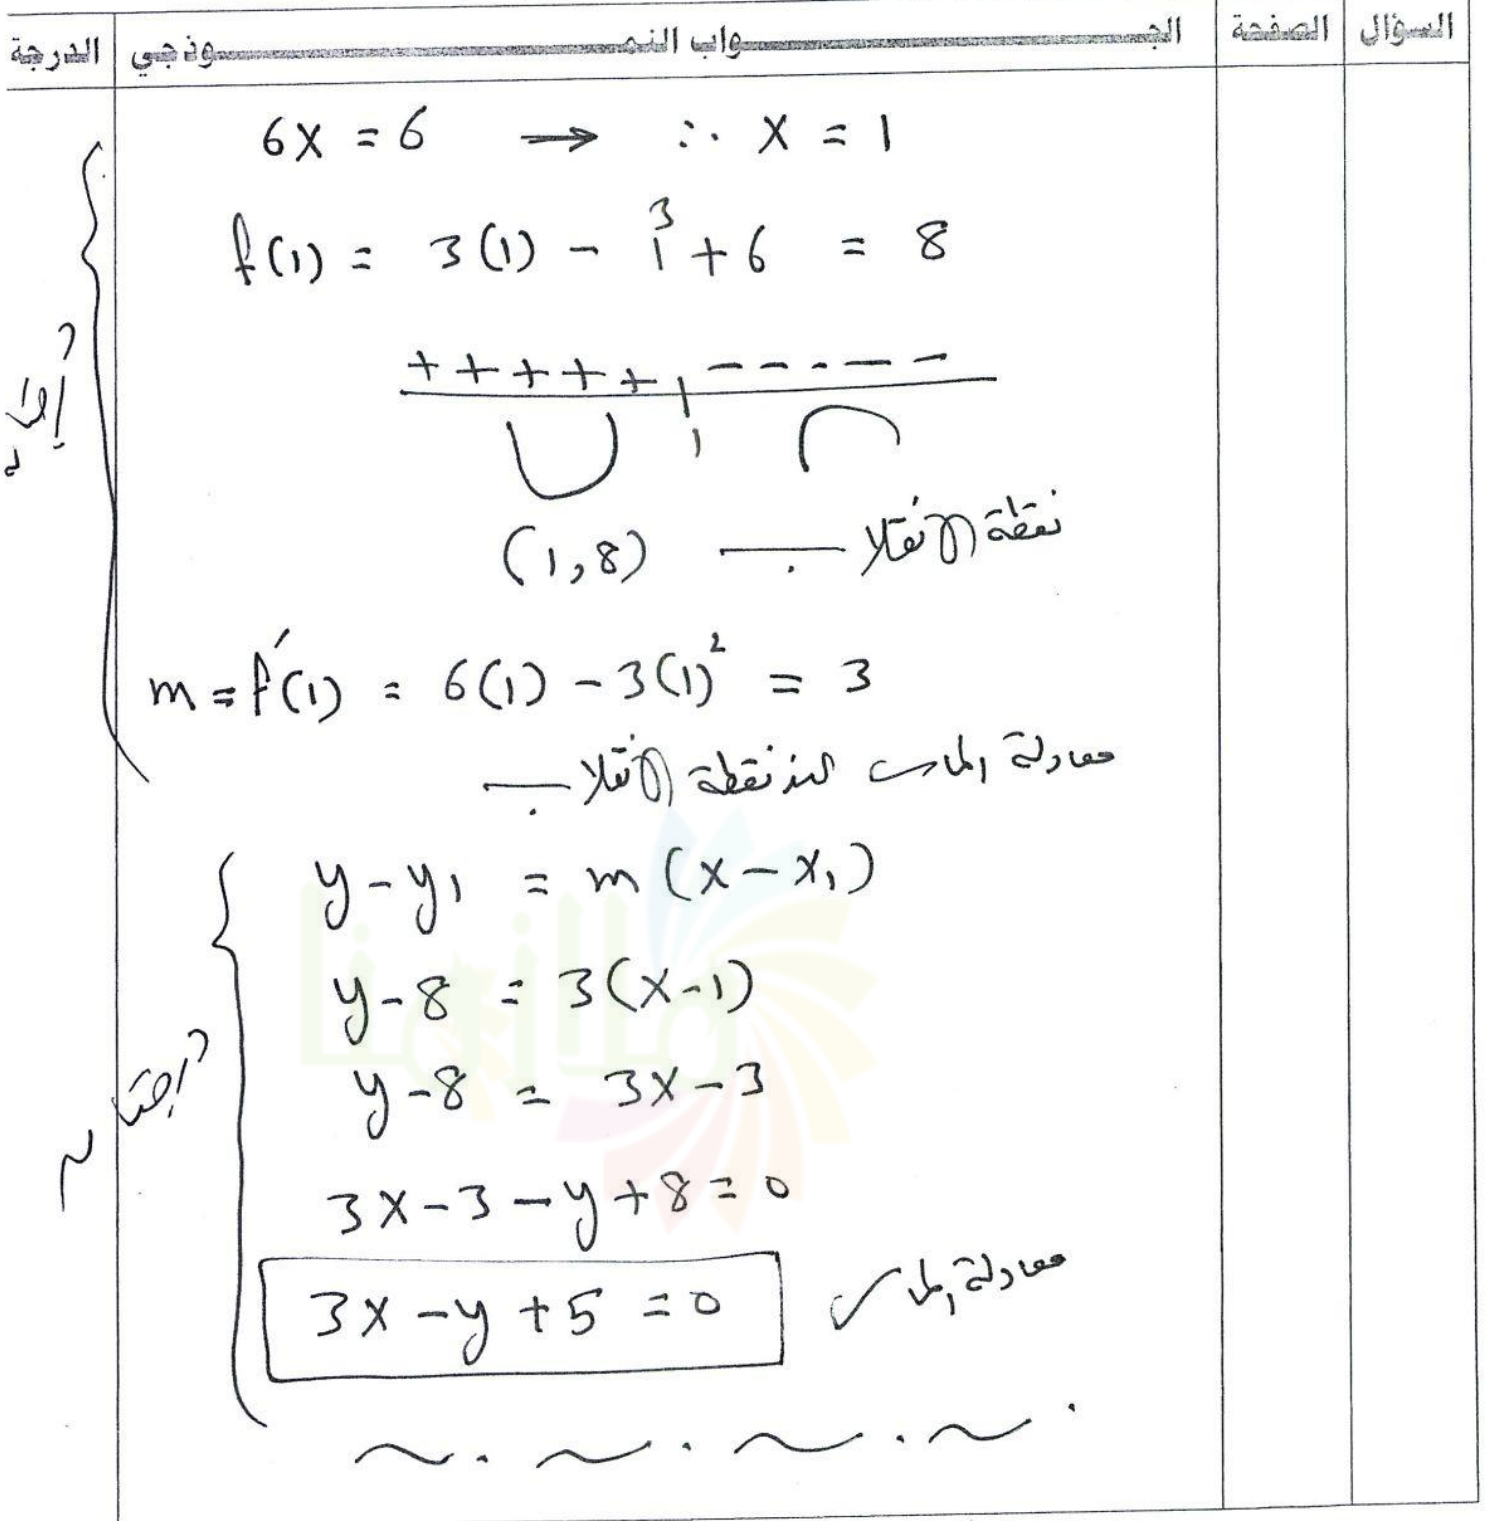 السؤال الصفحة الجـواب النمـوذجي الدرجة
6x = 6 → ∴ x = 1
f(1) = 3(1) - 1³ + 6 = 8
+ + + + + - - - - -
1
(1,8) نقطة الانقلاب
m = f′(1) = 6(1) - 3(1)² = 3
معادلة المماس عند نقطة الانقلاب
y - y₁ = m (x - x₁)
y - 8 = 3(x - 1)
y - 8 = 3x - 3
3x - 3 - y + 8 = 0
3x - y + 5 = 0 معادلة المماس
ملازمنا